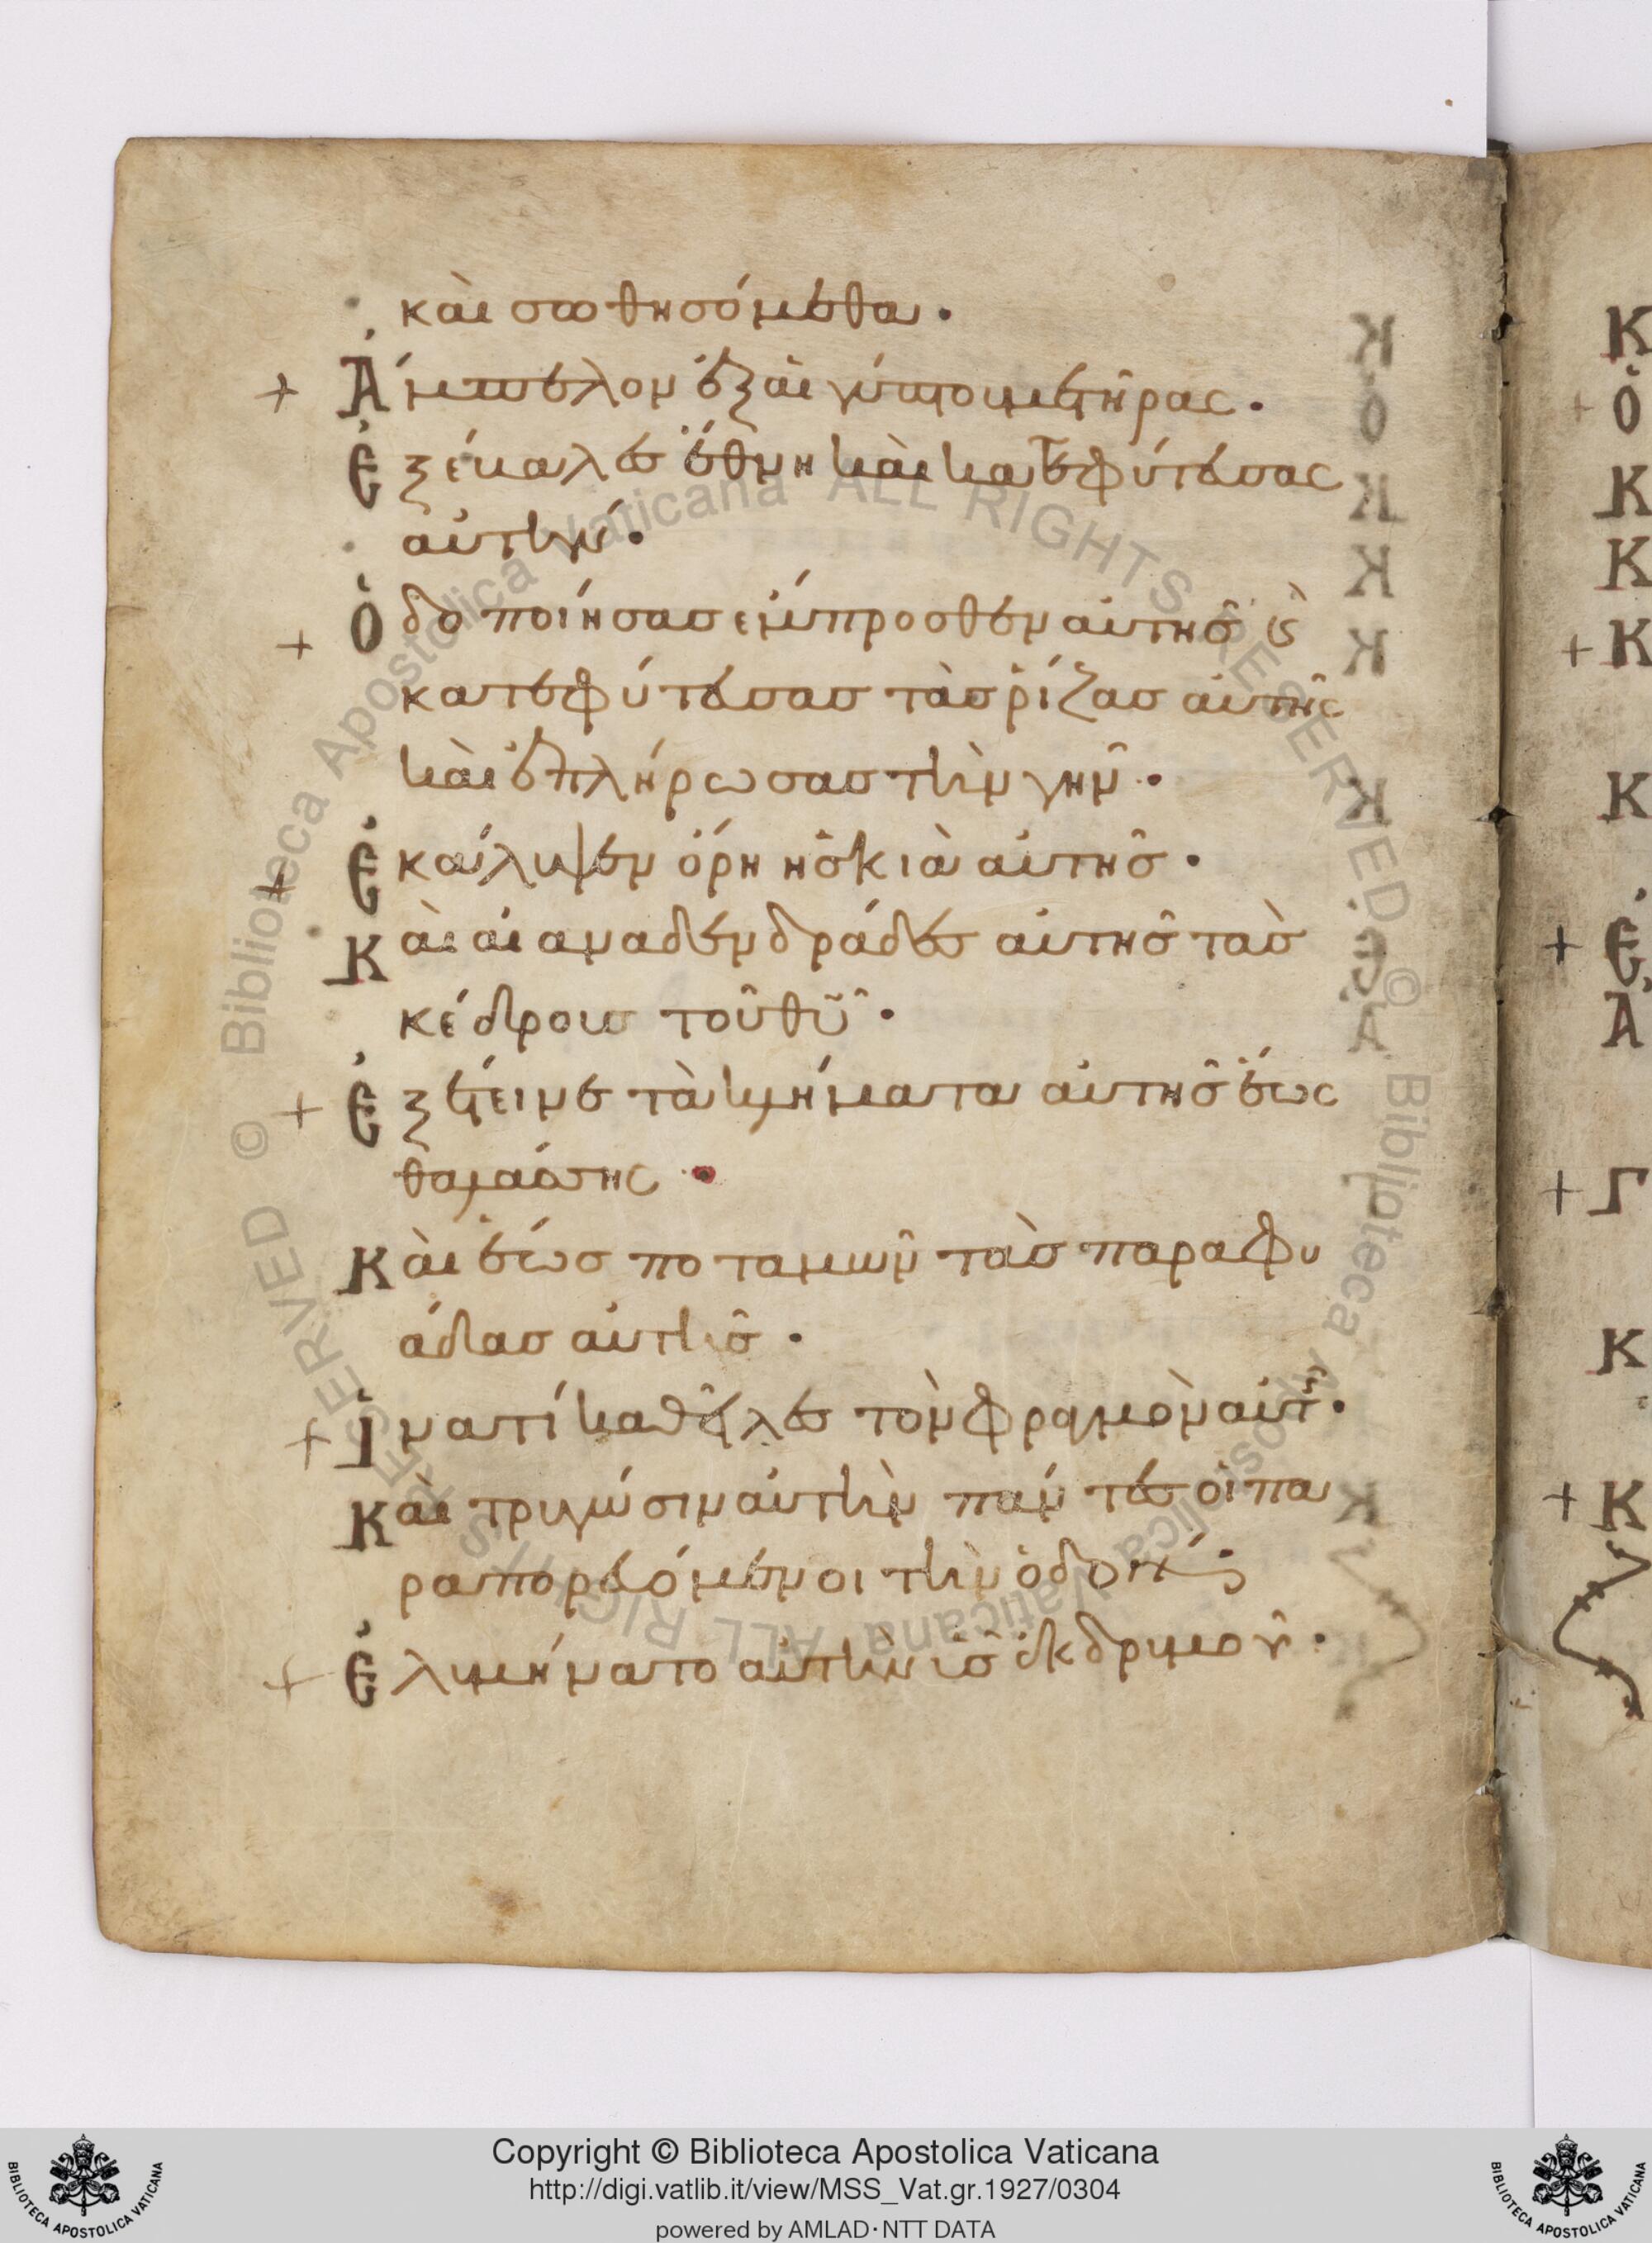 καὶ σωθησόμεθα·
+ Ἄμπελον ἐξ αἰγύπτου μετῆρας·
Ἐξέβαλες ἔθνη καὶ κατεφύτευσας
αὐτήν·
+ Ὁδοποίησας ἔμπροσθεν αὐτῆς ϗ
κατεφύτευσας τὰς ῥίζας αὐτῆς
καὶ ἐπλήρωσας τὴν γῆν·
+ Ἐκάλυψεν ὄρη ἡ σκιὰ αὐτῆς·
Καὶ αἱ αναδενδράδες αὐτῆς τὰς
κέδρους τοῦ θυ·
+ Ἐξέτεινε τὰ κλήματα αὐτῆς ἕως
θαλάσσης·
Καὶ ἕως ποταμῶν τὰς παραφυ
άδας αὐτῆς·
+ Ἱνατί καθεῖλες τὸν φραγμὸν αὐτῆς·
Καὶ τρυγῶσιν αὐτὴν πάντες οἱ πα
ραπορευόμενοι τὴν ὁδόν
+ Ἐλυμήνατο αὐτὴν ὗς ἐκ δρυμοῦ·
+ Κ
Ὁ
Κ
Κ
+ Κ
Κ
+ Ἐ
Ἀ
+ Γ
Κ
+ Κ
Biblioteca Apostolica Vaticana ALL RIGHTS RESERVED ©
Biblioteca Apostolica Vaticana ALL RIGHTS RESERVED ©
Copyright © Biblioteca Apostolica Vaticana
http://digi.vatlib.it/view/MSS_Vat.gr.1927/0304
powered by AMLAD·NTT DATA
BIBLIOTECA APOSTOLICA VATICANA
BIBLIOTECA APOSTOLICA VATICANA